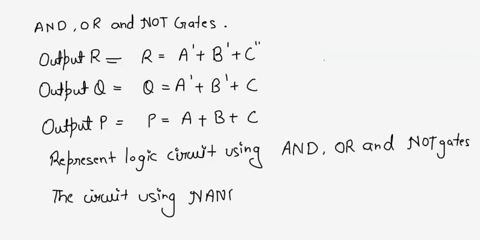 AND, OR and NOT Gates.
Output R = R = A' + B' + C''
Output Q = Q = A' + B' + C
Output P = P = A + B + C
Represent logic circuit using AND, OR and NOT gates
The circuit using NAN